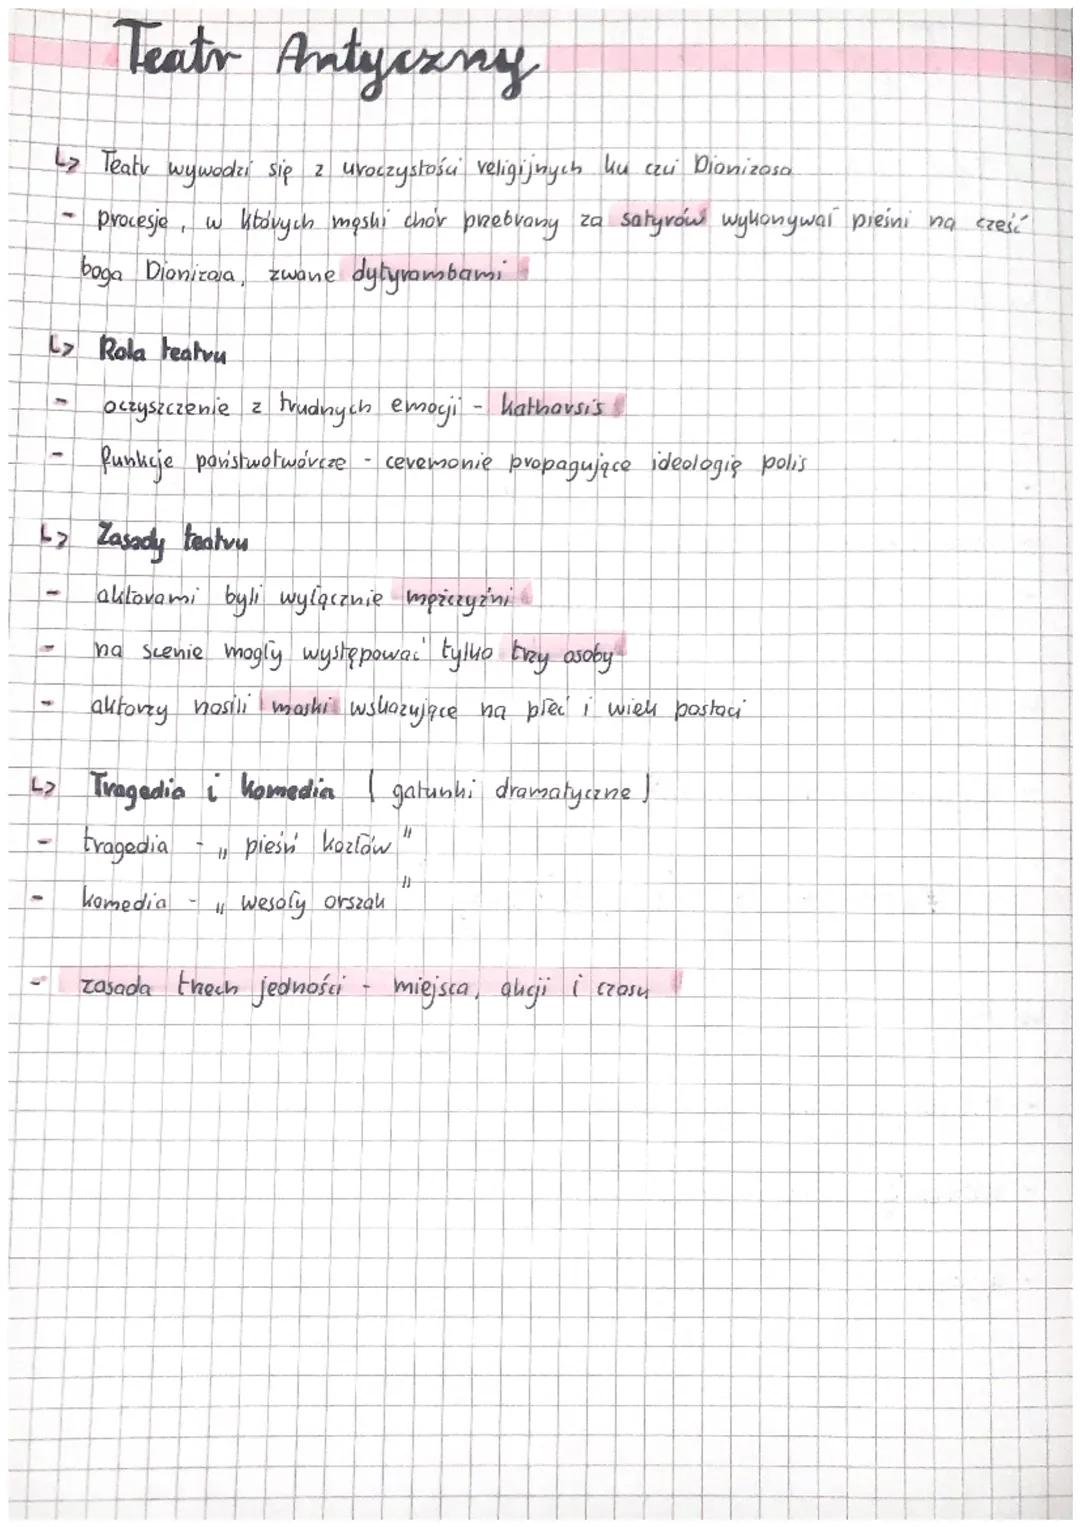 Teatr Antyczny
↳ Teatr wywodzi się z uroczystości religijnych ku czci Dionizosa
- procesje, w których męski chór przebrany za satyrów wykonywał pieśni na cześć
boga Dionizosa, zwane dytyrambami
↳ Rola teatru
- oczyszczenie z trudnych emocji - katharsis
- funkcje państwotwórcze - ceremonie propagujące ideologię polis
↳ Zasady teatru
- aktorami byli wyłącznie mężczyźni
- na scenie mogły występować tylko trzy osoby
- aktorzy nosili maski wskazujące na płeć i wiek postaci
↳ Tragedia i komedia ( gatunki dramatyczne )
- tragedia - „ pieśń kozłów "
- komedia - „ wesoły orszak "
- zasada trzech jedności - miejsca, akcji i czasu